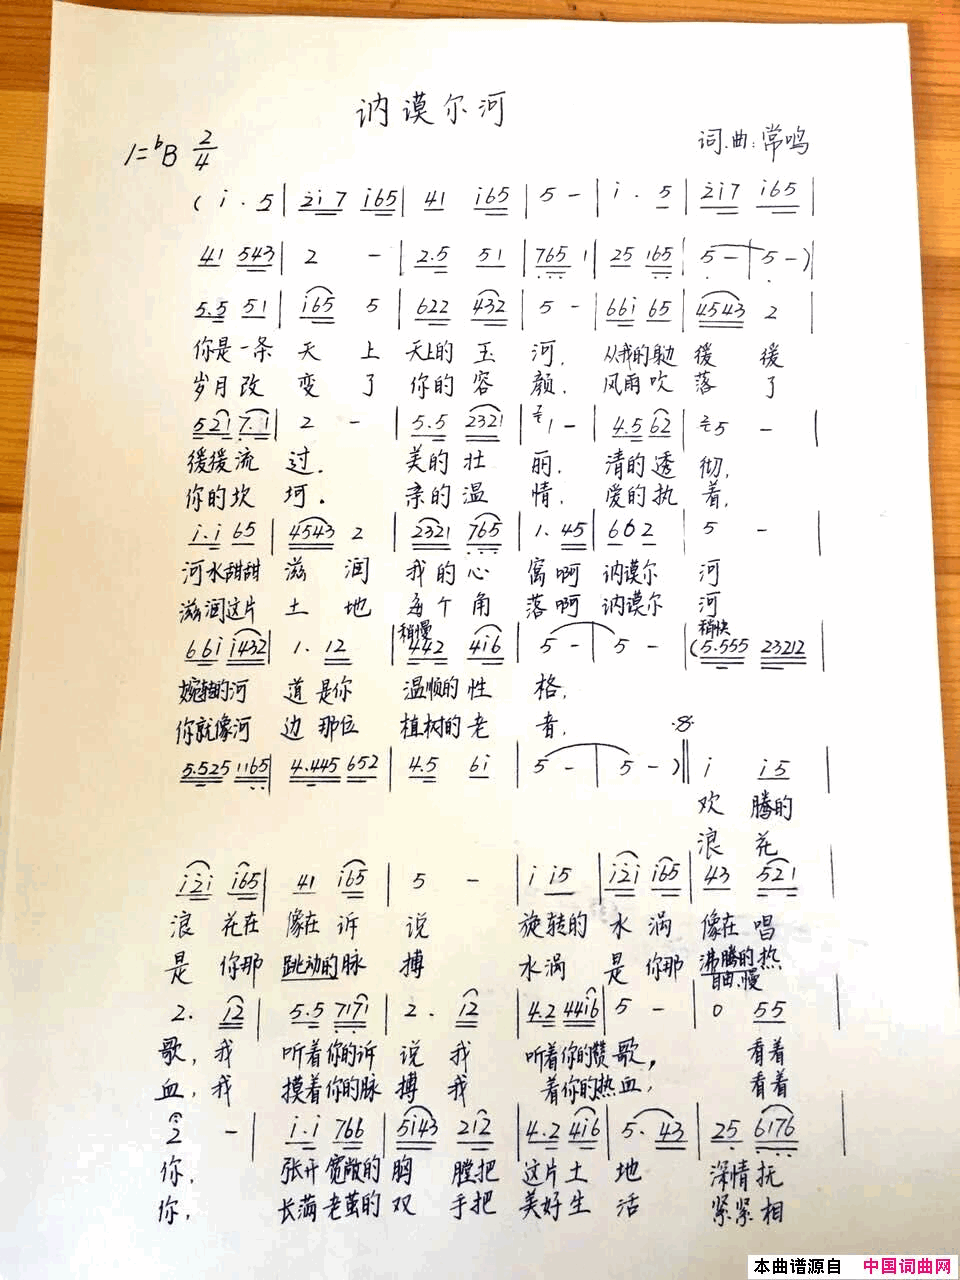 讷谟尔河
1=ᵇB 2/4
词.曲:常鸣
( i . 5 | 2i 7 i65 | 41 i65 | 5 - | i . 5 | 2i7 i65 |
41 543 | 2 - | 2.5 51 | 765 1 | 25 165 | 5 - | 5 - )
5.5 51 | i65 5 | 622 432 | 5 - | 66i 65 | 4543 2
你是一条 天 上 天上的 玉 河, 从我的身边 缓 缓
岁月改 变 了 你的 容 颜. 风雨吹 落 了
521 7.1 | 2 - | 5.5 2321 | 1 - | 4.5 62 | 5 - |
缓缓流 过. 美的 壮 丽. 清的透 彻,
你的坎 坷. 亲的 温 情, 爱的执 着,
i.i 65 | 4543 2 | 2321 765 | 1. 45 | 602 | 5 - |
河水甜甜 滋 润 我 的 心 窝 啊 讷谟尔 河
滋润这片 土 地 每 个 角 落 啊 讷谟尔 河
稍慢 稍快
66i i432 | 1. 12 | 442 4i6 | 5 - | 5 - | (5.555 23212 |
婉转的河 道 是你 温顺的 性 格,
你就像河 边 那位 植树的 老 者,
5.525 1165 | 4.445 652 | 4.5 6i | 5 - | 5 - ) ‖ i i5 |
欢 腾的
浪 花
i2i i65 | 41 i65 | 5 - | i i5 | i2i i65 | 43 521 |
浪 花在 像在 诉 说 旋转的 水 涡 像在 唱
是 你那 跳动的 脉 搏 水涡 是 你那 沸腾的 热
自由.慢
2. 12 | 5.5 7171 | 2. 12 | 4.2 44i6 | 5 - | 0 55 |
歌, 我 听着你的诉 说 我 听着你的赞 歌, 看着
血, 我 摸着你的脉 搏 我 着你的热血, 看着
2 - | i.i 766 | 5i43 212 | 4.2 4i6 | 5. 43 | 25 6176 |
你, 张开 宽敞的 胸 膛把 这片 土 地 深情 抚
你, 长满 老茧的 双 手把 美好 生 活 紧紧 相
本曲谱源自 中国词曲网